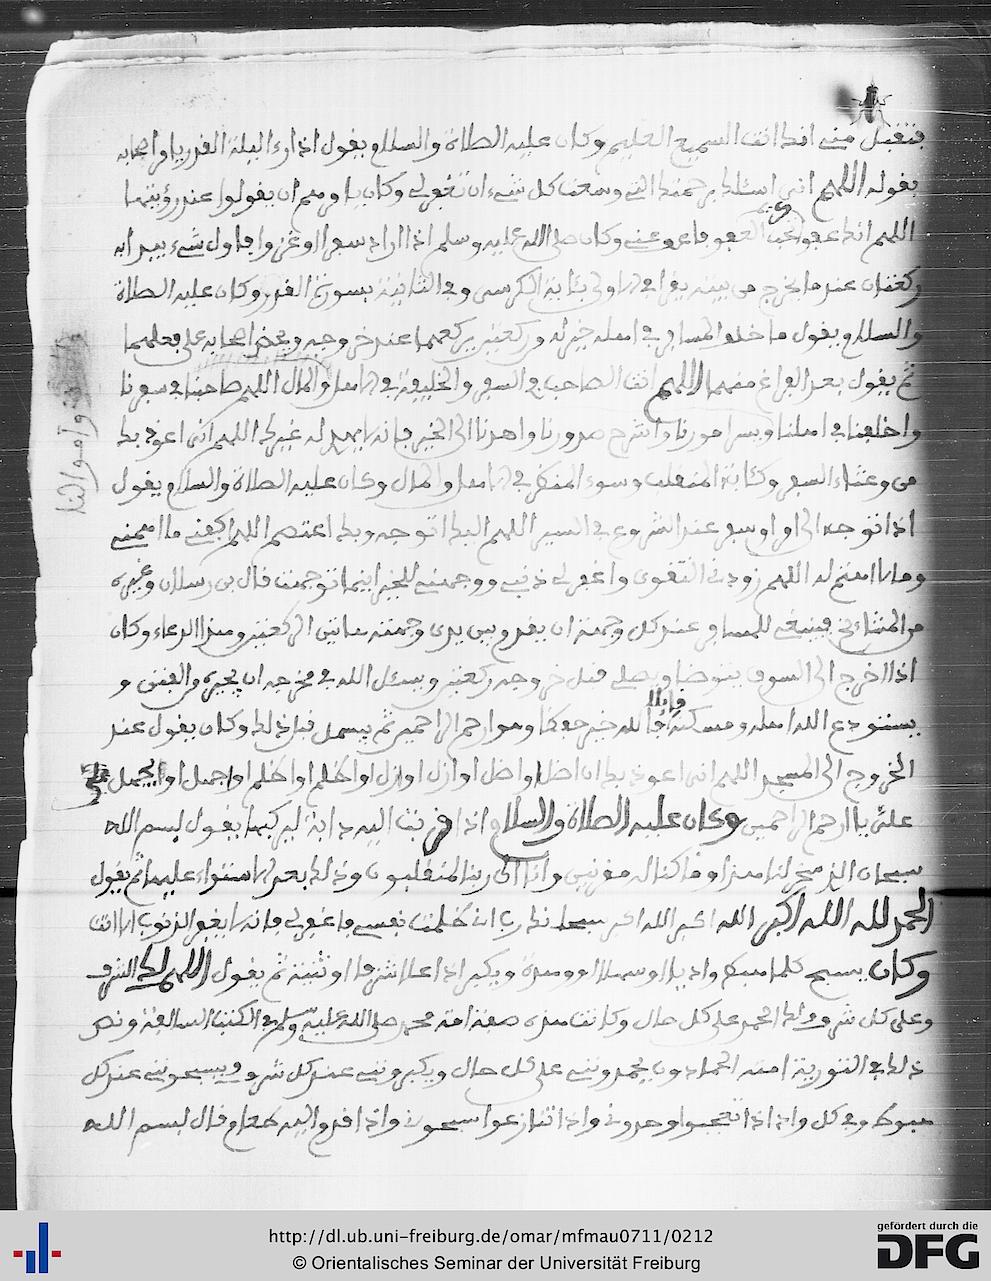 فتقبل مني انك انت السميع العليم وكان عليه الصلاة والسلام يقول اذا رءا ليلة القدر يامر اصحابه
بقوله اللهم اني اسئلك برحمتك التي وسعت كل شيء ان تغفر لي وكان يامرهم ان يقولوا عند رؤيتها
اللهم انك عفو تحب العفو فاعف عني وكان صلى الله عليه وسلم اذا اراد سفرا او غزوا فاول شيء يبدا به
ركعتان عند ما يخرج من بيته يقرا في الاولى بئاية الكرسي وفي الثانية بسورة القدر وكان عليه الصلاة
والسلام يقول ما خلف المسافر في اهله خير له من ركعتين يركعهما عند خروجه وبعض اصحابه على فعلهما
ثم يقول بعد الفراغ منهما اللهم انت الصاحب في السفر والخليفة في الاهل والمال اللهم صاحبنا في سفرنا
واخلفنا في اهلنا ويسر امورنا واشرح صدورنا واهدنا الى الخير فانه لا يهدي له غيرك اللهم اني اعوذ بك
من وعثاء السفر وكئابة المنقلب وسوء المنظر في الاهل والمال وكان عليه الصلاة والسلام يقول
اذا توجه الى او سفر عند الشروع في السير اللهم اليك اتوجه وبك اعتصم اللهم اكفني ما اهمني
وما لا اهتم له اللهم زودني التقوى واغفر لي ذنبي ووجهني للخير اينما توجهت قال بن رسلان وغيره
من المشائخ فينبغي للمسافر عند كل وجهة ان يقدم بين يدي وجهته هاتين الركعتين وهذا الدعاء وكان
اذا خرج الى السوق يتوضا ويصلي قبل خروجه ركعتين ويسئل الله في مخرجه ان يجيره من الفتن و
يستودع الله اهله ومسكنه قائلا فالله خير حفظا وهو ارحم الراحمين ثم يبسمل قبل ذلك وكان يقول عند
الخروج الى المسجد اللهم اني اعوذ بك ان اضل او اضل او ازل او ازل او اظلم او اظلم او اجهل او يجهل
علي يا ارحم الراحمين وكان عليه الصلاة والسلام واذا قربت اليه دابة ليركبها يقول بسم الله
سبحان الذي سخر لنا هذا وما كنا له مقرنين وانا الى ربنا لمنقلبون وذلك بعد الاستواء عليها ثم يقول
الحمد لله الله اكبر الله اكبر الله اكبر سبحانك رب اني ظلمت نفسي فاغفر لي فانه لا يغفر الذنوب الا انت
وكان يسبح كلما هبط واديا او سهلا او وهدة ويكبر اذا علا شرفا او ثنية ثم يقول اللهم لك الشرف
وعلى كل شرف ولك الحمد على كل حال وكانت هذه صفة امة محمد صلى الله عليه وسلم في الكتب السالفة ونص
ذلك في التورية امته الحمادون يحمدونني على كل حال ويكبرونني عند كل شرف ويسبحونني عند كل
هبوط وفي كل واد اذا تعجبوا وحدوني واذا تنازعوا سبحوني واذا قدم اليه طعام قال بسم الله
http://dl.ub.uni-freiburg.de/omar/mfmau0711/0212
© Orientalisches Seminar der Universität Freiburg
gefördert durch die
DFG